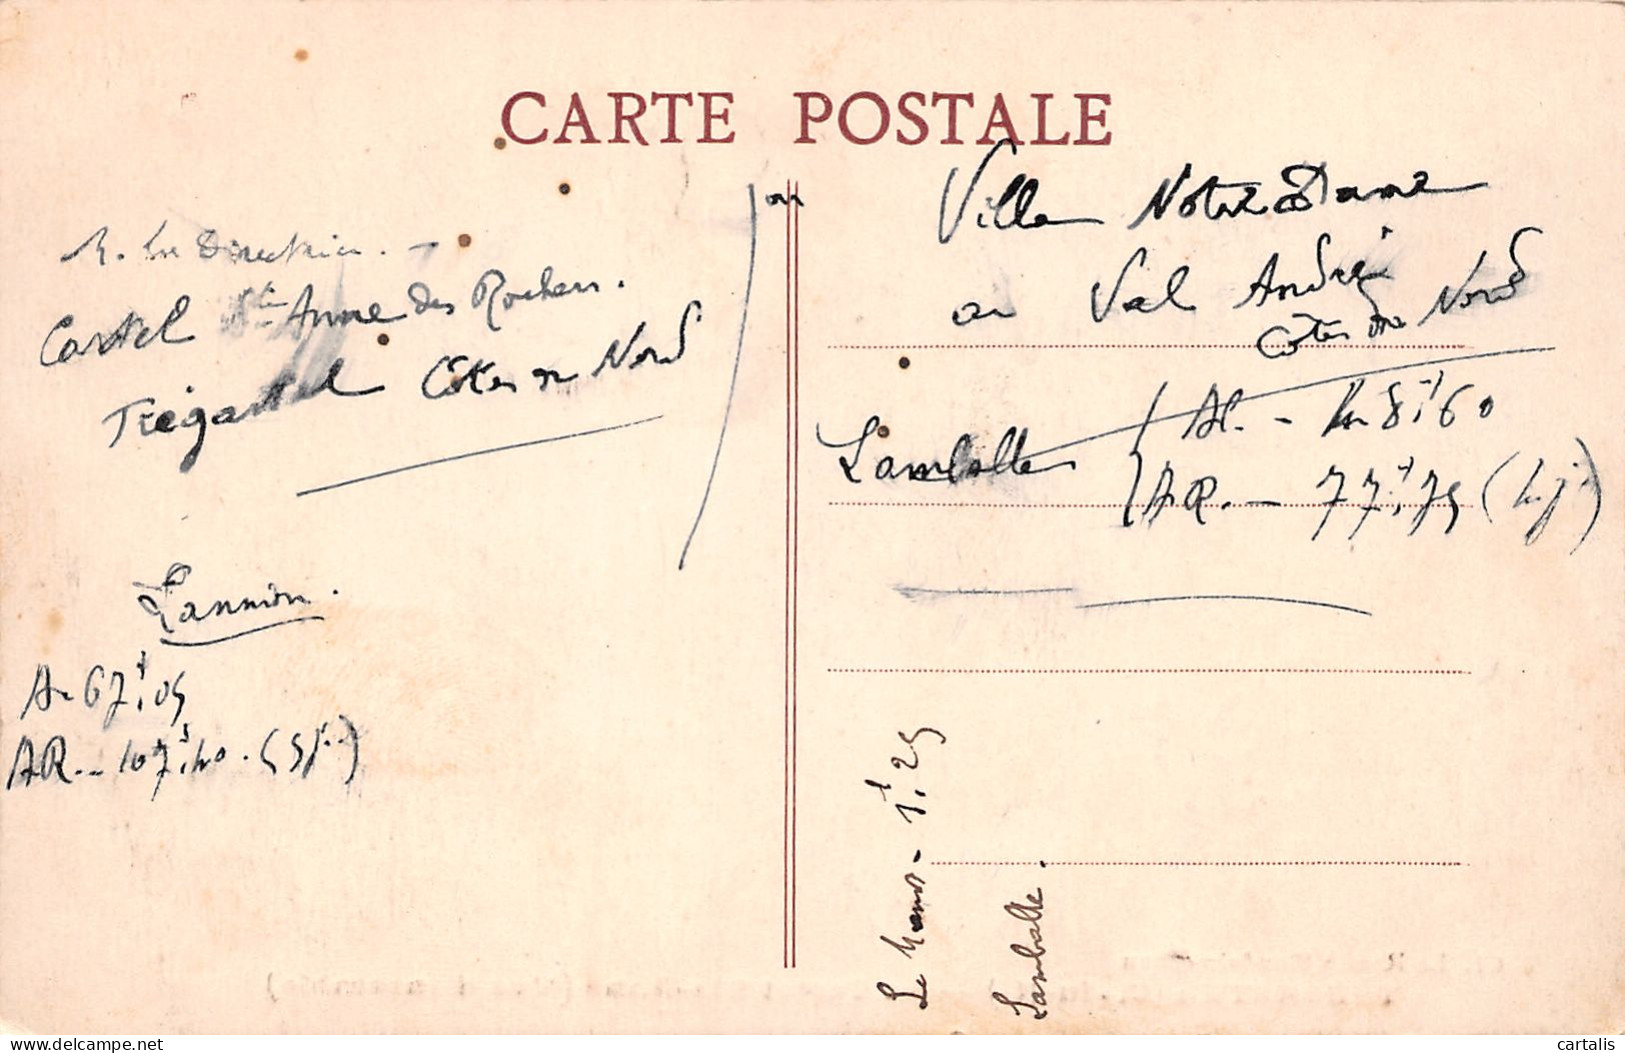 CARTE POSTALE
la Directrice.
Castel Ste Anne des Rochers.
Trégastel Côtes du Nord
ou
Villa Notre Dame
au Val André
Côtes du Nord
Lamballe
AR. - 77f,75
Lannion.
67f,05
AR. - 107f,40. (5j.)
Le Mans - 25
Lamballe.
cartalis